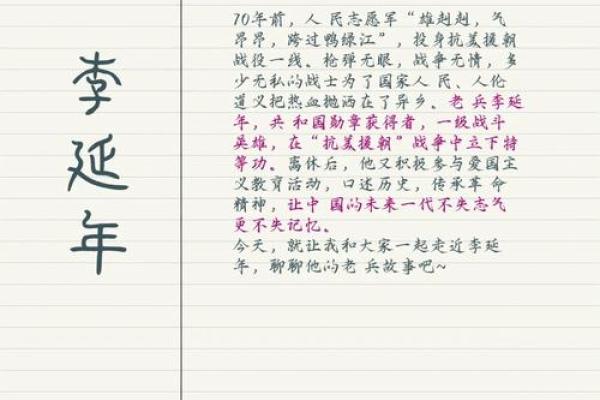 李延年
70年前，人 民志愿军“雄赳赳，气
昂昂，跨过鸭绿江”，投身抗美援朝
战役一线。枪弹无眼，战争无情，多
少无私的战士为了国家人 民、人伦
道义把热血抛洒在了异乡。老 兵李延
年，共 和国勋章获得者，一级战斗
英雄，在“抗美援朝”战争中立下特
等功。离休后，他又积极参与爱国主
义教育活动，口述历史，传承革 命
精神，让中 国的未来一代不失志气
更不失记忆。
今天，就让我和大家一起走近李延
年，聊聊他的老 兵故事吧~